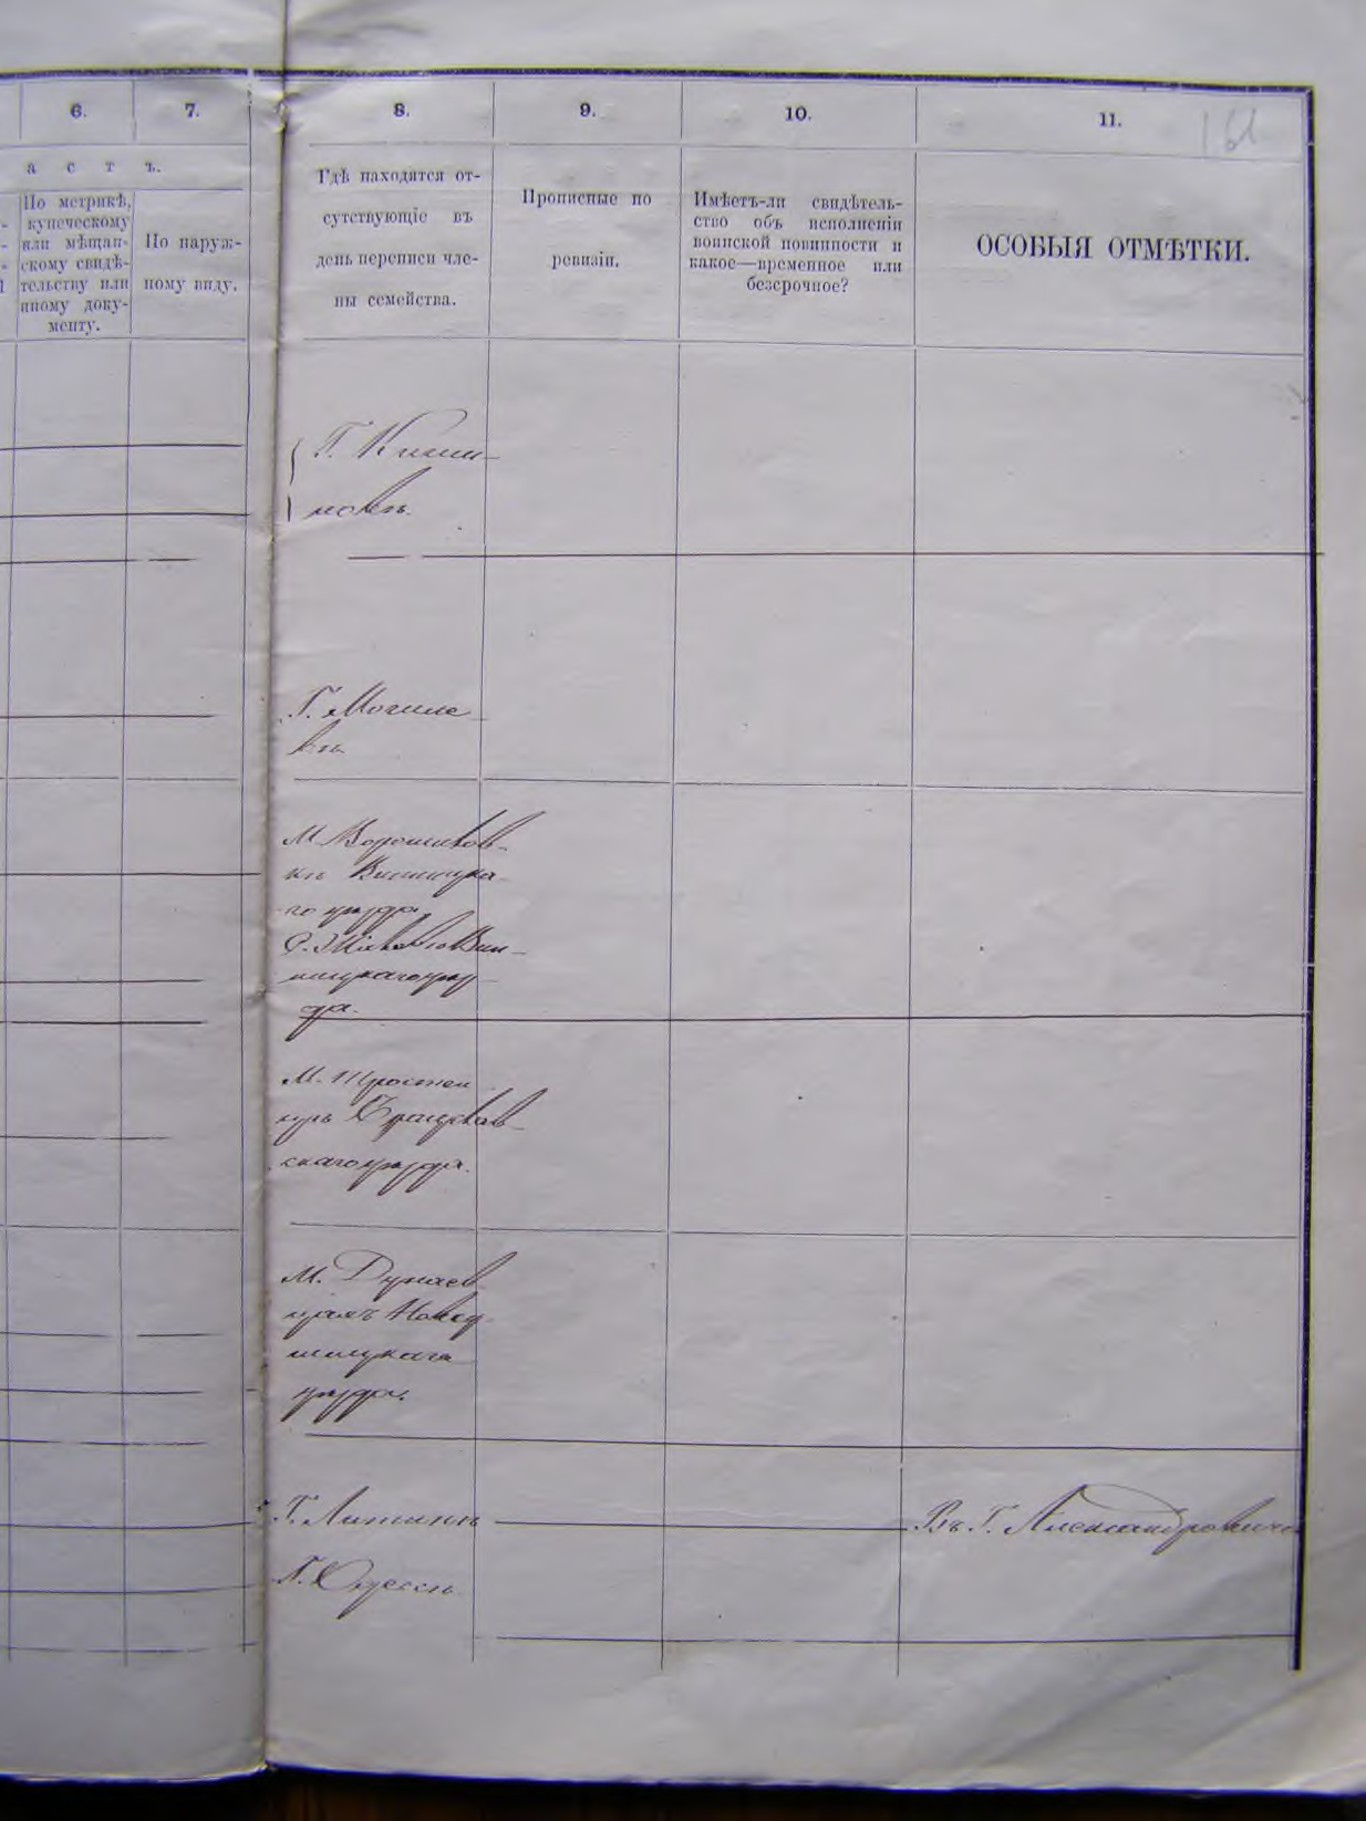 6.
7.
8.
9.
10.
11.
161
а с т ъ.
По метрикѣ,
купеческому
или мѣщан-
скому свидѣ-
тельству или
иному доку-
менту.
По наруж-
ному виду.
Гдѣ находятся от-
сутствующіе въ
день переписи чле-
ны семейства.
Прописные по
ревизіи.
Имѣетъ-ли свидѣтель-
ство объ исполненіи
воинской повинности и
какое—временное или
безсрочное?
ОСОБЫЯ ОТМѢТКИ.
Г. Киши-
невѣ.
Г. Могиле
вѣ.
М. Вороновиц-
кѣ Винницка
го уѣзда,
нницкаго уѣз-
да.
М. Тростян
цѣ Брацлав-
скаго уѣзда.
М. Дунаев
цахъ Новоу-
шицкаго
уѣзда.
Г. Литинѣ
Въ Г. Александровичѣ
Г. Одессѣ.